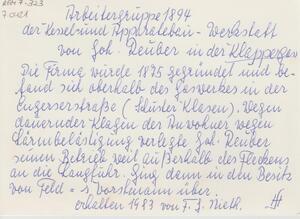 Arbeitergruppe 1894
der Kesel- und Apparatebau - Werkstatt
von Joh. Reuber in der Klappergasse
Die Firma würde 1875 gegründet und be-
fand sich oberhalb des Gaswerkes in der
Engerserstraße (Schuster Klasen). Wegen
dauernder Klagen der Anwohner wegen
Lärmbelästigung verlegte Joh. Reuber
seinen Betrieb weit außerhalb des Fleckens
an die Langfuhr. Ging dann in den Besitz
von Feld = s, Vorstmann über.
erhalten 1983 von F. J. Nieth.